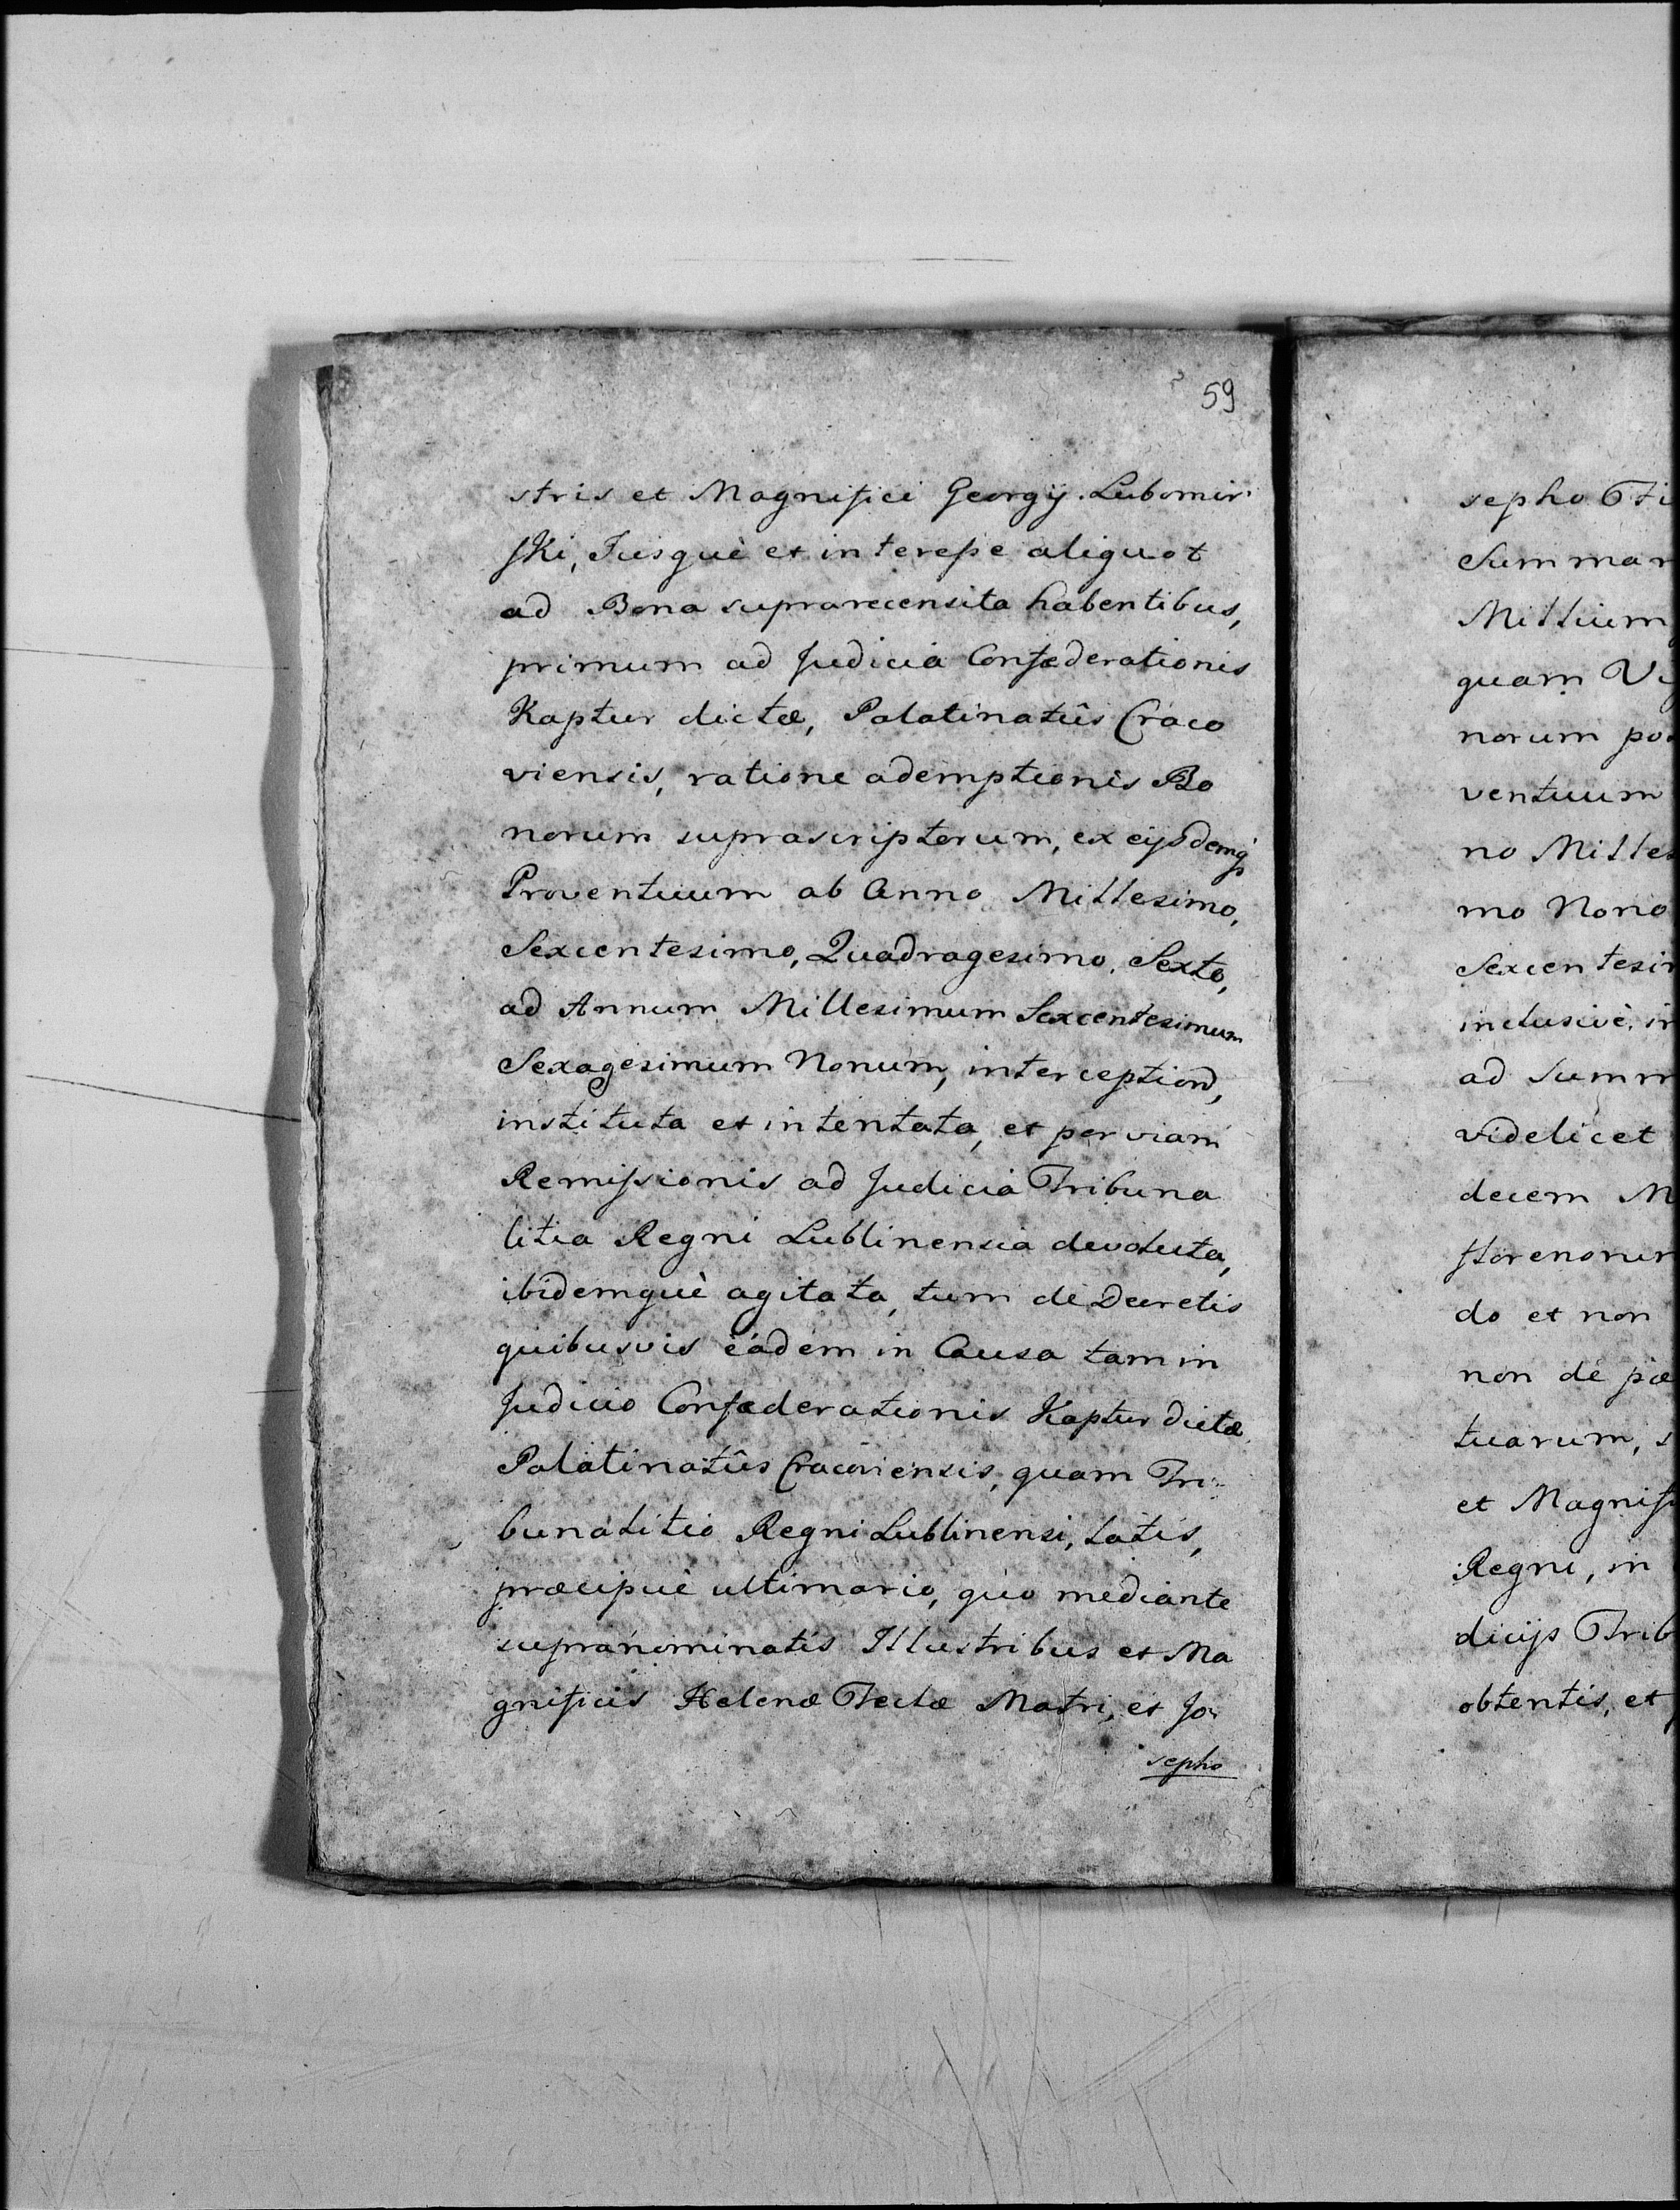 59
stris et Magnifici Georgij Lubomir
ski, Jusquè et interesse aliquot
ad Bona suprarecensita habentibus,
primum ad Judicia Confæderationis
Kaptur dictæ, Palatinatûs Craco
viensis, ratione ademptionis Bo
norum suprascriptorum, ex eijsdemq3
Proventuum ab Anno Millesimo,
Sexcentesimo, Quadragesimo, Sexto,
ad Annum Millesimum Sexcentesimum
Sexagesimum Nonum,
instituta et intentata, et per viam
Remissionis ad Judicia Tribuna
litia Regni Lublinensia devoluta,
ibidemquè agitata, tum de Decretis
quibusvis eâdem in Causa tam in
Judicio Confæderationis Kaptur dictæ
Palatinatûs Cracoviensis, quam Tri:
bunalitio Regni Lublinensi, latis,
præcipuè ultimario, quo mediante
supranominatis Illustribus et Ma
gnificis Helenæ Tectæ Matri, et Jo:
sepho
sepho
Summar
Millium
quam
norum
ventuum
no Milles
mo Nono
Sexcentesi
inclusivè, in
ad Summ
videlicet
decem M
florenorum
do et non
non de
tuarum, s
et Magnifi
Regni, in
dicijs Trib
obtentis, et